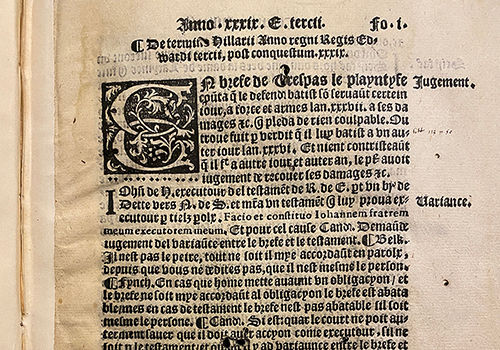 Anno .xxxix. E. tercii. Fo. i.
¶ De termino Hillarii Anno regni Regis Ed-
wardi tercii, post conquestum. xxxix.
EN brefe de Trespas le playntyfe Jugement.
cōuta q̄ le defend̄ batist sō seruaūt certein
iour, a force et armes lan. xxxvii. a ses da
mages ⁊c. q̄ pleda de rien coulpable. Ou
troue fuit p verdit q̄ il luy batist a vn au-
ter iour lan. xxxvi. Et nient contristeaūt
q̄ il fᵗ a autre iour et auter an, le pl̄ auoit
iugement de recouer ses damages ⁊c.
IOhn̄ de H. executour del testamēt de R. de E. pt vn bꝛ de
Dette vers N. de S. et mr̄a vn testamēt q̄ luy proua ex- Variance.
ecutour p tielz polx. Facio et constituo Iohannem fratrem
meum executorem meum. Et pour cel cause Cand. Demaūde
iugement del variaūce entre le brefe et le testament. ¶ Belk.
Il nest pas le petre, tout ne soit il mye accordaūt en parolx,
depuis que vous ne dedites pas, que il nest mesme le person.
¶ Fynch. En cas que home mette auaūt vn obligacyon, et
le brefe ne soit mye accordaūt al obligacyon le brefe est abata
ble, mes en cas de testament le brefe nest pas abatable sil soit
mesme le persone. ¶ Cand. Si est: quar le court ne poit au-
terment sauer que il doit auer accyon come executour, sil ne
soit p le testament, et quant il y ad variaunce entre le brefe et